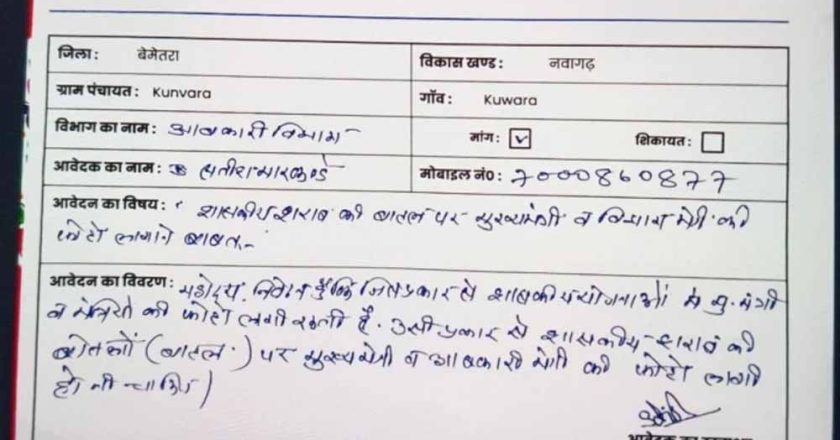 जिला: बेमेतरा विकास खण्ड: नवागढ़
ग्राम पंचायत: Kunvara गाँव: Kuwara
विभाग का नाम: आबकारी विभाग मांग: ☑ शिकायत: ☐
आवेदक का नाम: मारकण्डे मोबाईल नं०: 7000860877
आवेदन का विषय: शासकीय शराब की बातल पर मुख्यमंत्री व विभाग मंत्री की
फोटो लगाने बाबत.
आवेदन का विवरण: महोदय, निवेदन है कि जिस प्रकार से शासकीय योजनाओं में मु. मंत्री
व मंत्रियों की फोटो लगी रहती है. उसी प्रकार से शासकीय शराब की
बोतलों (बातल.) पर मुख्यमंत्री व आबकारी मंत्री की फोटो लगी
होनी चाहिए)